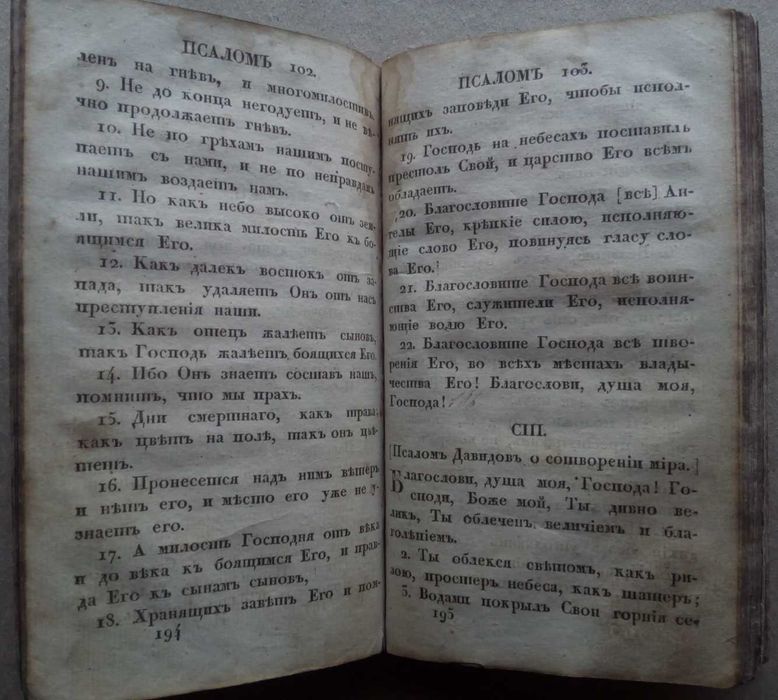 ПСАЛОМЪ 102.
ленъ на гнѣвъ, и многомилостивъ.
9. Не до конца негодуетъ, и не вѣ-
чно продолжаетъ гнѣвъ.
10. Не по грѣхамъ нашимъ посту-
паетъ съ нами, и не по неправдамъ
нашимъ воздаетъ намъ.
11. Но какъ небо высоко отъ зем-
ли, такъ велика милость Его къ бо-
ящимся Его.
12. Какъ далекъ востокъ отъ за-
пада, такъ удаляетъ Онъ отъ насъ
преступленія наши.
13. Какъ отецъ жалѣетъ сыновъ,
такъ Господь жалѣетъ боящихся Его.
14. Ибо Онъ знаетъ составъ нашъ,
помнитъ, что мы прахъ.
15. Дни смертнаго, какъ трава;
какъ цвѣтъ на полѣ, такъ онъ цвѣ-
тетъ.
16. Пронесется надъ нимъ вѣтеръ
и нѣтъ его, и мѣсто его уже не у-
знаетъ его.
17. А милость Господня отъ вѣка
и до вѣка къ боящимся Его, и прав-
да Его къ сынамъ сыновъ,
18. Хранящихъ завѣтъ Его и пом-
194
ПСАЛОМЪ 103.
нящихъ заповѣди Его, чтобы испол-
нять ихъ.
19. Господь на небесахъ поставилъ
престолъ Свой, и царство Его всѣмъ
обладаетъ.
20. Благословите Господа [всѣ] Ан-
гелы Его, крѣпкіе силою, исполняю-
щіе слово Его, повинуясь гласу сло-
ва Его.
21. Благословите Господа всѣ воин-
ства Его, служители Его, исполня-
ющіе волю Его.
22. Благословите Господа всѣ тво-
ренія Его, во всѣхъ мѣстахъ влады-
чества Его! Благослови, душа моя,
Господа!
CIII.
[Псаломъ Давидовъ о сотвореніи міра.]
Благослови, душа моя, Господа! Го-
споди, Боже мой, Ты дивно ве-
ликъ, Ты облеченъ величіемъ и бла-
голѣпіемъ.
2. Ты облекся свѣтомъ, какъ ри-
зою, простеръ небеса, какъ шатеръ;
3. Водами покрылъ Свои горнія се-
195